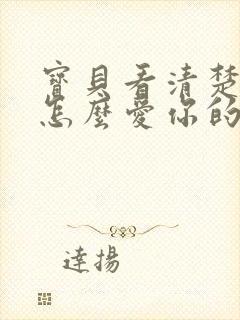 寶貝看清楚
怎麼愛你的
達揚